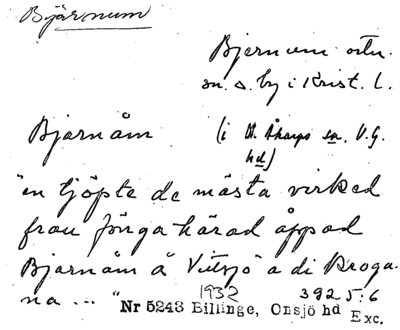 Bjärnum
Bjernum ortn.
sn. o. by i Krist. l.
Bjarnåm (i V. Åkarps sn. V.G.
hd)
"en tjöpte de mästa virked
frau Jönga härad åppad
Bjarnåm å Vitsjö a di Kroga-
na ..." 1932 392 5:6
Nr 5243 Billinge, Onsjö hd Exc.